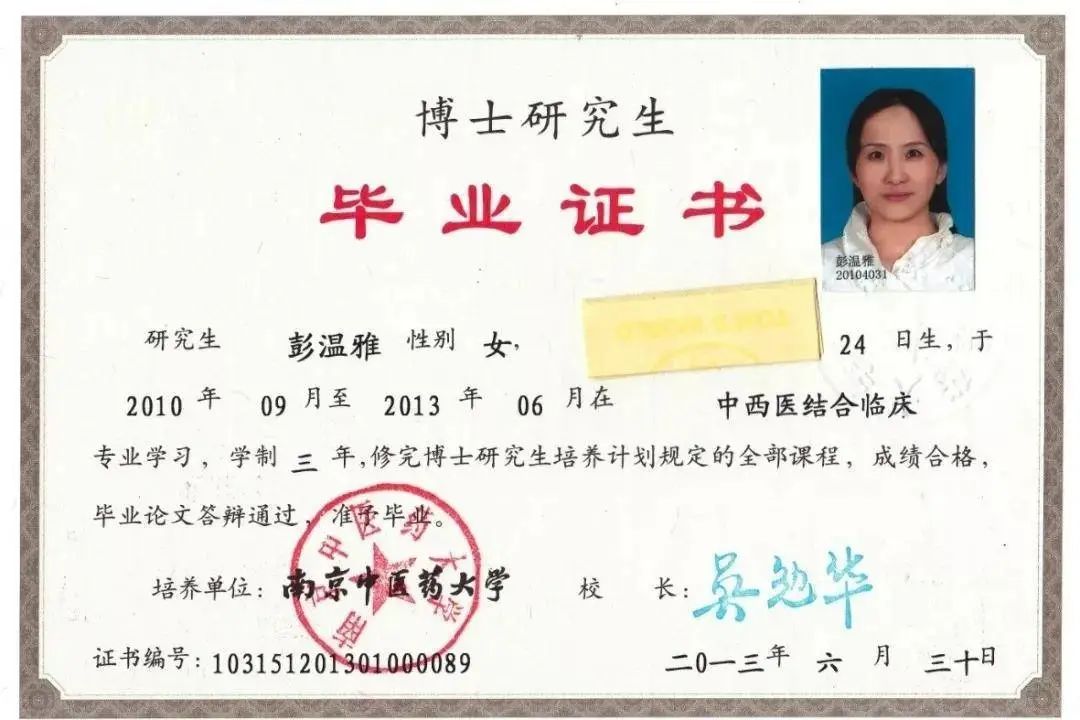 博士研究生
毕业证书
彭温雅
20104031
研究生 彭温雅 性别 女， 24 日生，于
2010 年 09 月至 2013 年 06 月在 中西医结合临床
专业学习，学制 三 年，修完博士研究生培养计划规定的全部课程，成绩合格，
毕业论文答辩通过，准予毕业。
南京中医药大学
培养单位：南京中医药大学 校 长：吴勉华
证书编号：103151201301000089 二〇一三年 六 月 三十日